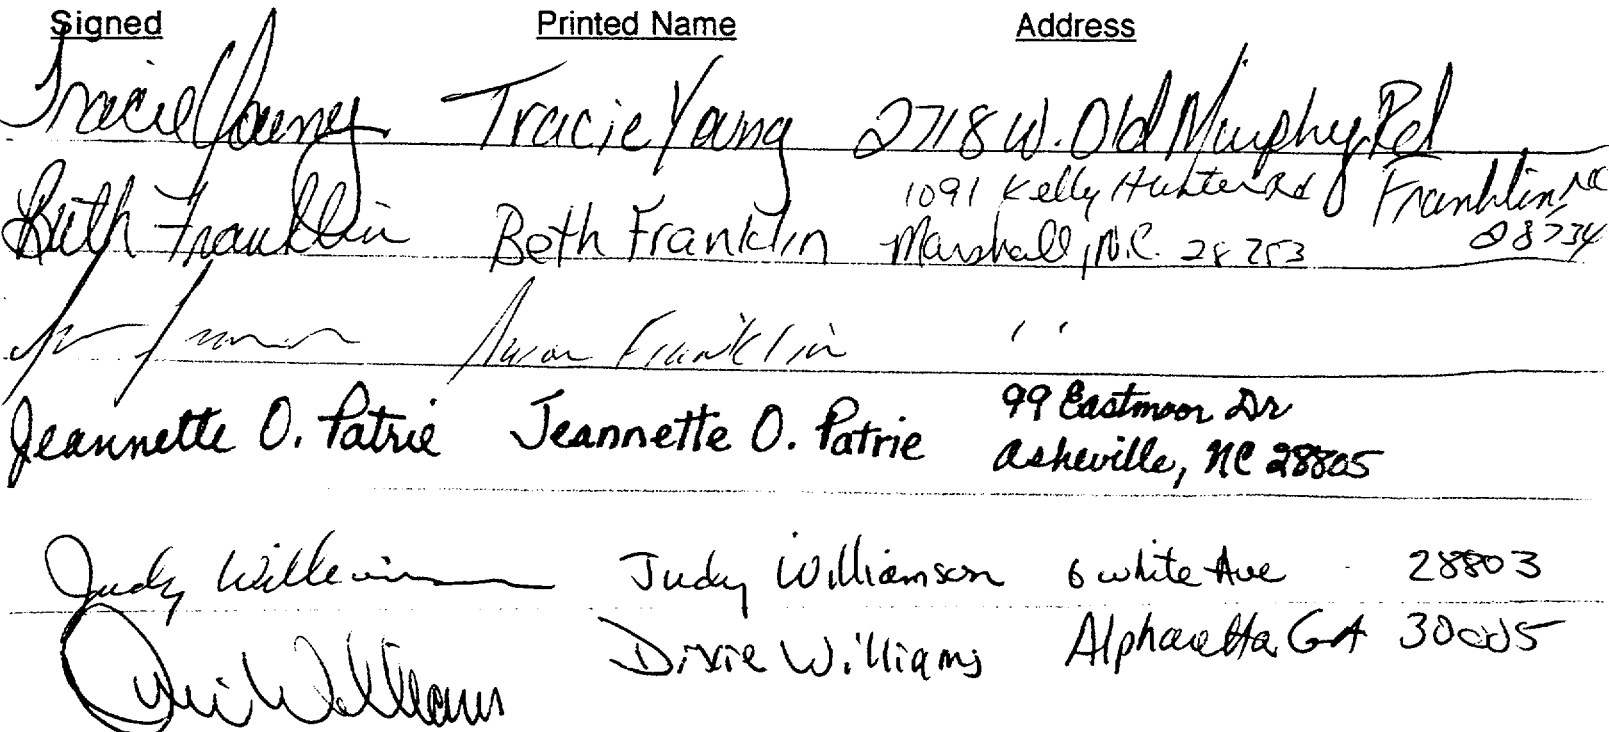 Signed Printed Name Address
Tracie Young Tracie Young 2718 W. Old Murphy Rd
Franklin, NC
28734
Beth Franklin Beth Franklin 1091 Kelly Hunter Rd
Marshall, N.C. 28753
Franklin ' '
Jeannette O. Patrie Jeannette O. Patrie 99 Eastmoor Dr
Asheville, NC 28805
Judy Williamson Judy Williamson 6 white Ave 28803
Dixie Williams Dixie Williams Alpharetta GA 30005